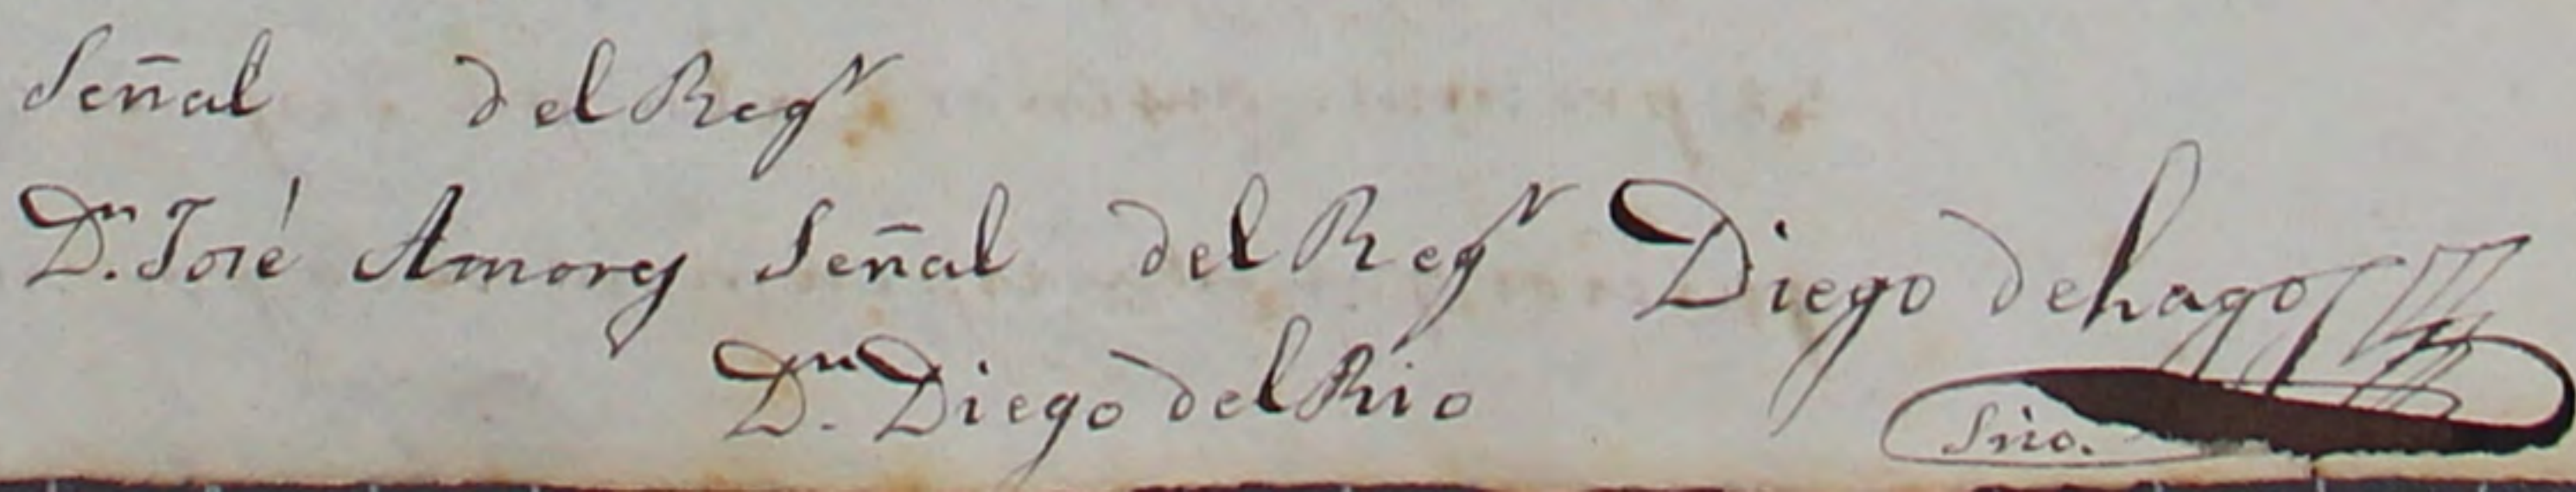 Señal del Regr
Dn. José Amorej Señal del Regr Diego de hago
Dn. Diego del Rio
Srio.